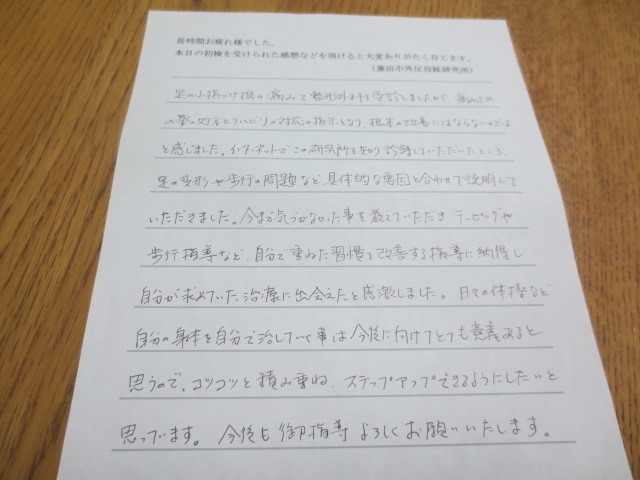 長時間お疲れ様でした。
本日の初検を受けられた感想などを頂けると大変ありがたく存じます。
（蓮田市外反母趾研究所）
足の小指つけ根の痛みで整形外科を受診しましたが、痛み止め
の薬の処方とリハビリの対応の指示となり、根本の改善にはならないのでは
と感じました。インターネットでこの研究所を知り診ていただいたところ、
足の変形や歩行の問題など具体的な要因と合わせて説明して
いただきました。今まで気づかなかった事を教えていただき テーピングや
歩行指導など、自分で重ねた習慣を改善する指導に納得し
自分が求めていた治療に出会えたと感激しました。日々の体操など
自分の身体を自分で治していく事は今後に向けてとても意義あると
思うので、コツコツと積み重ね、ステップアップできるようにしたいと
思っています。今後も御指導よろしくお願いいたします。